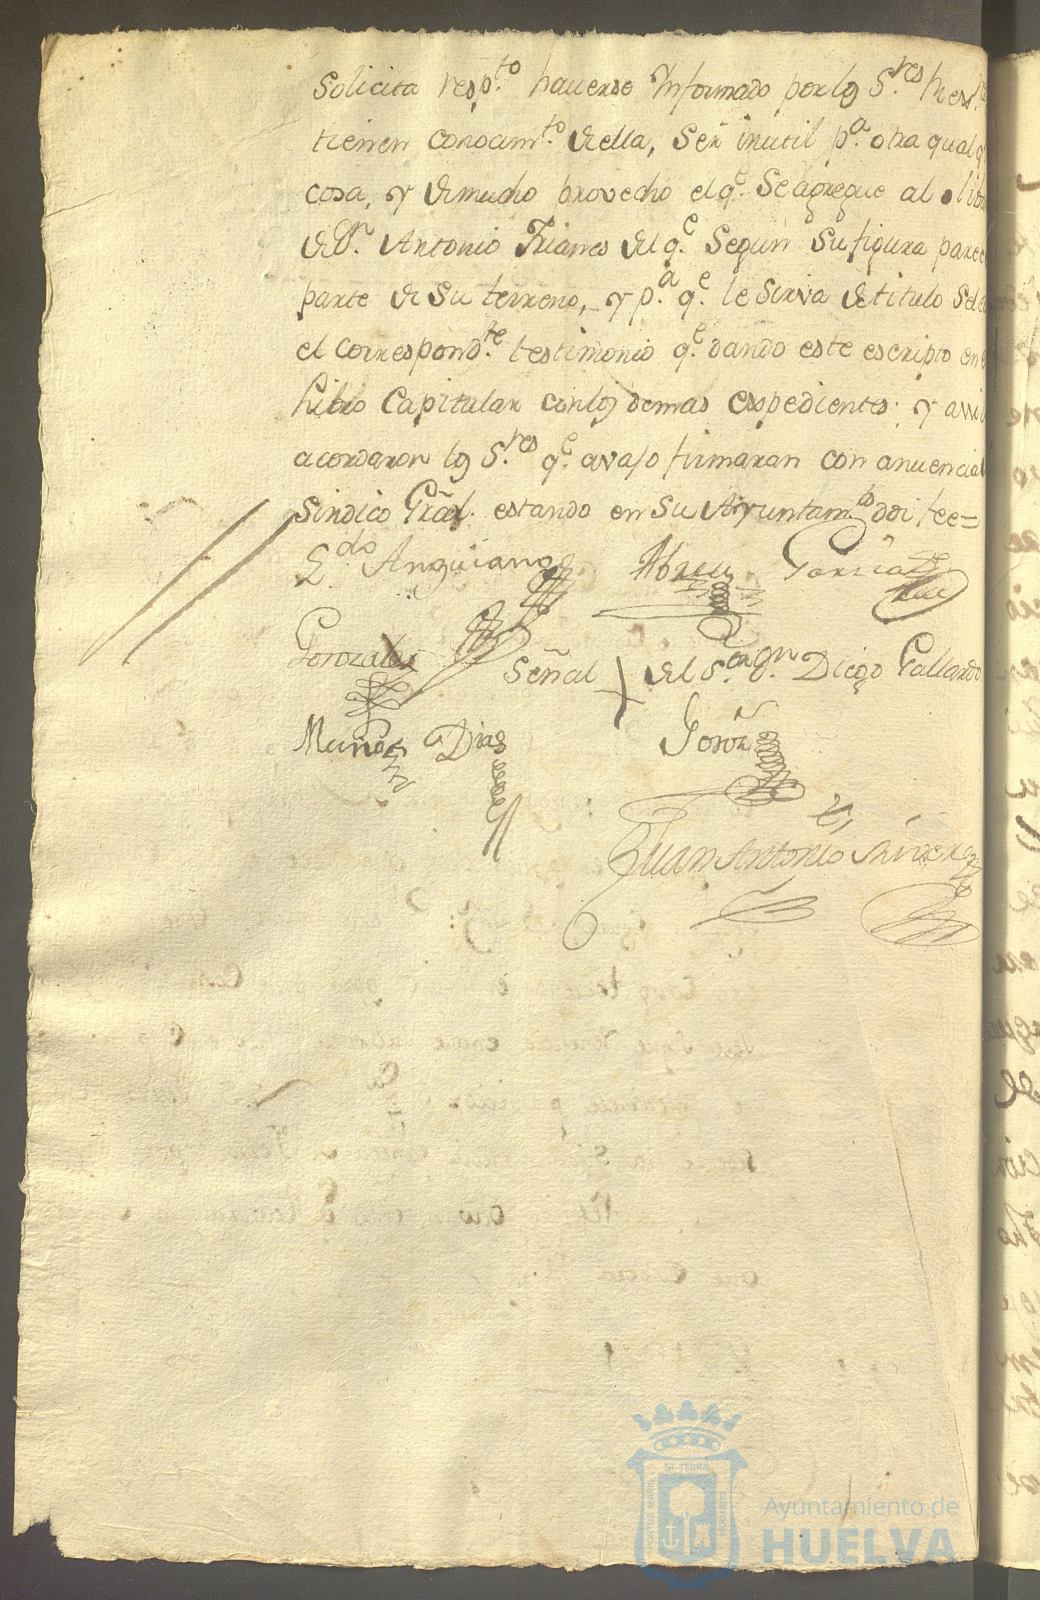 Solicita resp.to hauerse Informado por los S.res
tienen conosim.to de ella, Ser inutil p.a otra qualq
cosa, y de mucho provecho el q.e Se agregue al
de D.n Antonio Trianes del q.e Segun Su figura parece
parte de Su terreno, y p.a q.e le Sirva de titulo Se le
el correspond.te testimonio q.e dando este escripto en
Libro Capitular con los demas espedientes; y assi
acordaron los S.res q.e avajo firmaran con anuencia
Sindico Gral. estando en Su Ayuntam.to doi fee=
L.do Anguiano Abreu Garcia
Gonzales Señal del S.or D.n Diego Gallardo
Muños Dias
Juan Antonio
Ayuntamiento de
HUELVA